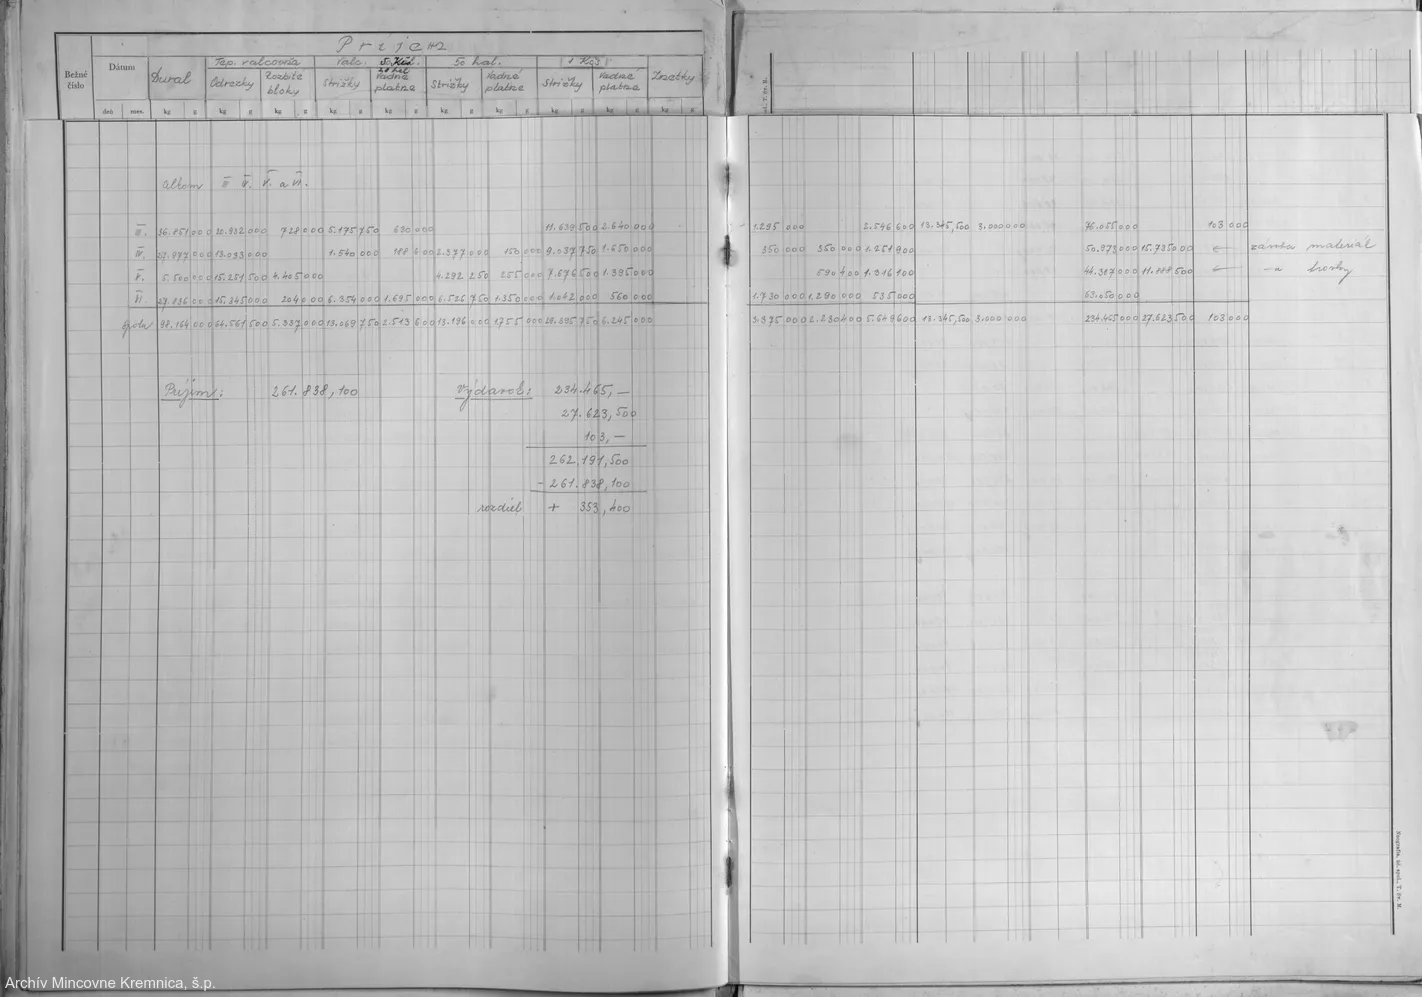 Príjem
Bežné číslo
Dátum
Dural
Tep. valcovňa
Valc.
50 hal.
1 Kčs
Odrezky
Rozbité bloky
Strižky
Vadné platne
Strižky
Vadné platne
Strižky
Vadné platne
Zmetky
deň mes. kg g kg g kg g kg g kg g kg g kg g kg g kg g kg g
Album III IV. V. a VI.
III. 36.851 000 20.932 000 728 000 5.175 750 630 000 11.639 500 2.640 000 1.295 000 2.546 600 13.345,500 3.000 000 76.055 000 103 000
IV. 27.977 000 13.033 000 1.540 000 188 600 2.377 000 150 000 9.037 750 1.650 000 350 000 350 000 1.251 900 50.973 000 15.735 00 materiál
V. 5.500 000 15.251 500 4.405 000 4.292 250 255 000 7.676 500 1.395 000 590 400 1.316 100 44.387 000 11.888 500
VI. 27.836 000 15.345 000 204 000 6.354 000 1.695 000 6.526 750 1.350 000 1.042 000 560 000 1.730 000 1.290 000 535 000 63.050 000
Spolu 98.164 000 64.561 500 5.337 000 13.069 750 2.513 600 13.196 000 1755 000 29.395 750 6.245 000 3.375 000 2.230 400 5.649 600 13.345,500 3.000 000 234.465 000 27.623 500 103 000
Príjem: 261.838,100 Výdavok: 234.465,—
27.623,500
103,—
262.191,500
- 261.838,100
rozdiel + 353,400
Neografia, úč. spol., T. Sv. M
Archív Mincovne Kremnica, š.p.